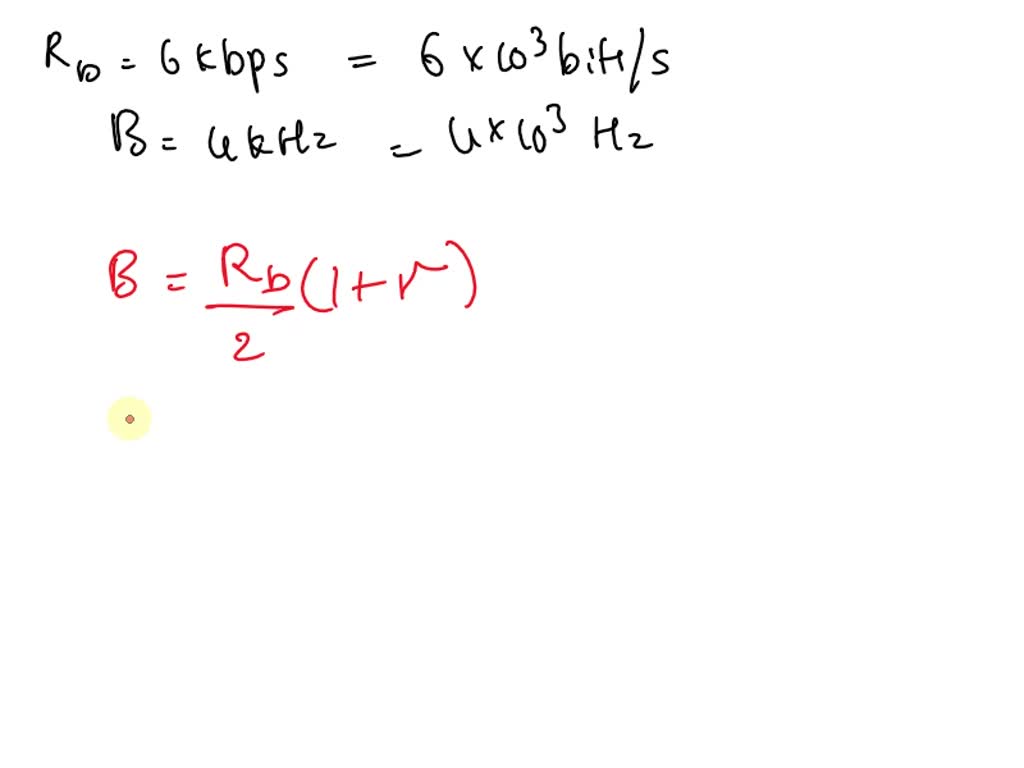 R_b = 6 kbps = 6 × 10³ bit/s
B = 4 kHz = 4 × 10³ Hz
B = R_b/2 (1 + r)